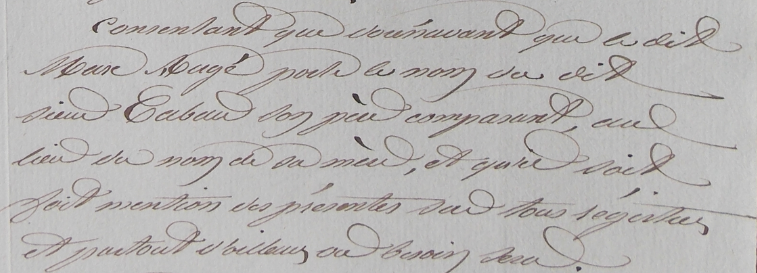 consentant que dorénavant que le dit
Marc Augé porte le nom du dit
sieur Cabaud son père comparant, au
lieu du nom de sa mère, et qu'il soit
fait mention des présentes sur tous régistres
et partout d'ailleurs où besoin sera.